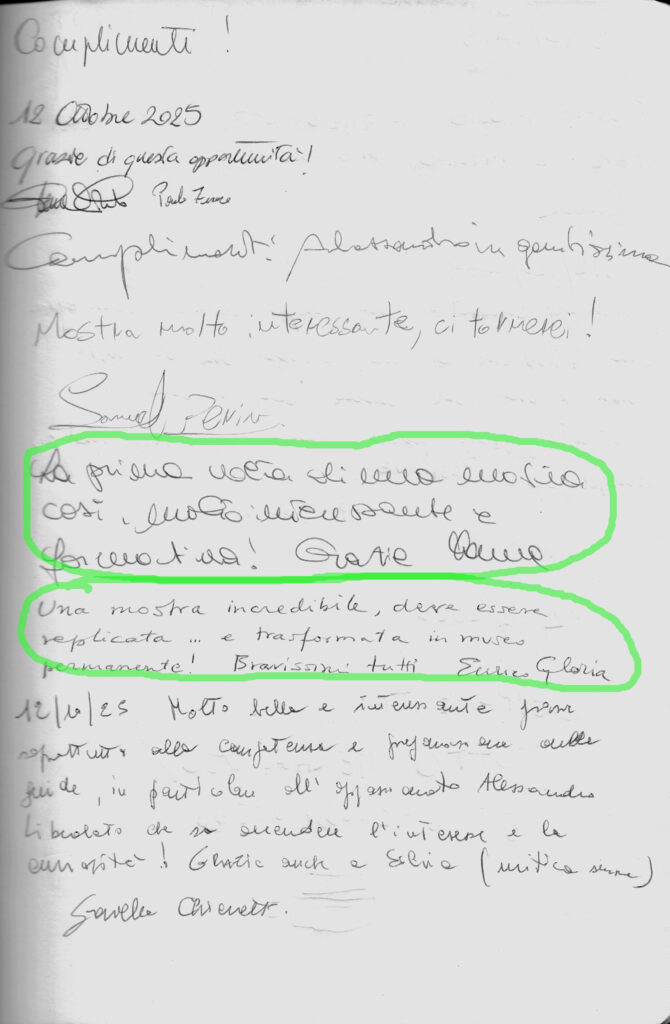 Complimenti !
12 Ottobre 2025
Grazie di questa opportunità!
Paolo
Complimenti! Alessandro in gentissima
Mostra molto interessante, ci tornerei!
Samuel
La prima volta di una mostra
così, molto interessante e
formativa! Grazie
Una mostra incredibile, deve essere
replicata ... e trasformata in museo
permanente! Bravissimi tutti Enrico Gloria
12/10/25 Molto bella e interessante
soprattutto alla competenza e preparazione delle
guide, in particolare all'appassionato Alessandro
Liberato che sa accendere l'interesse e la
curiosità! Grazie anche a Silvia (mitica